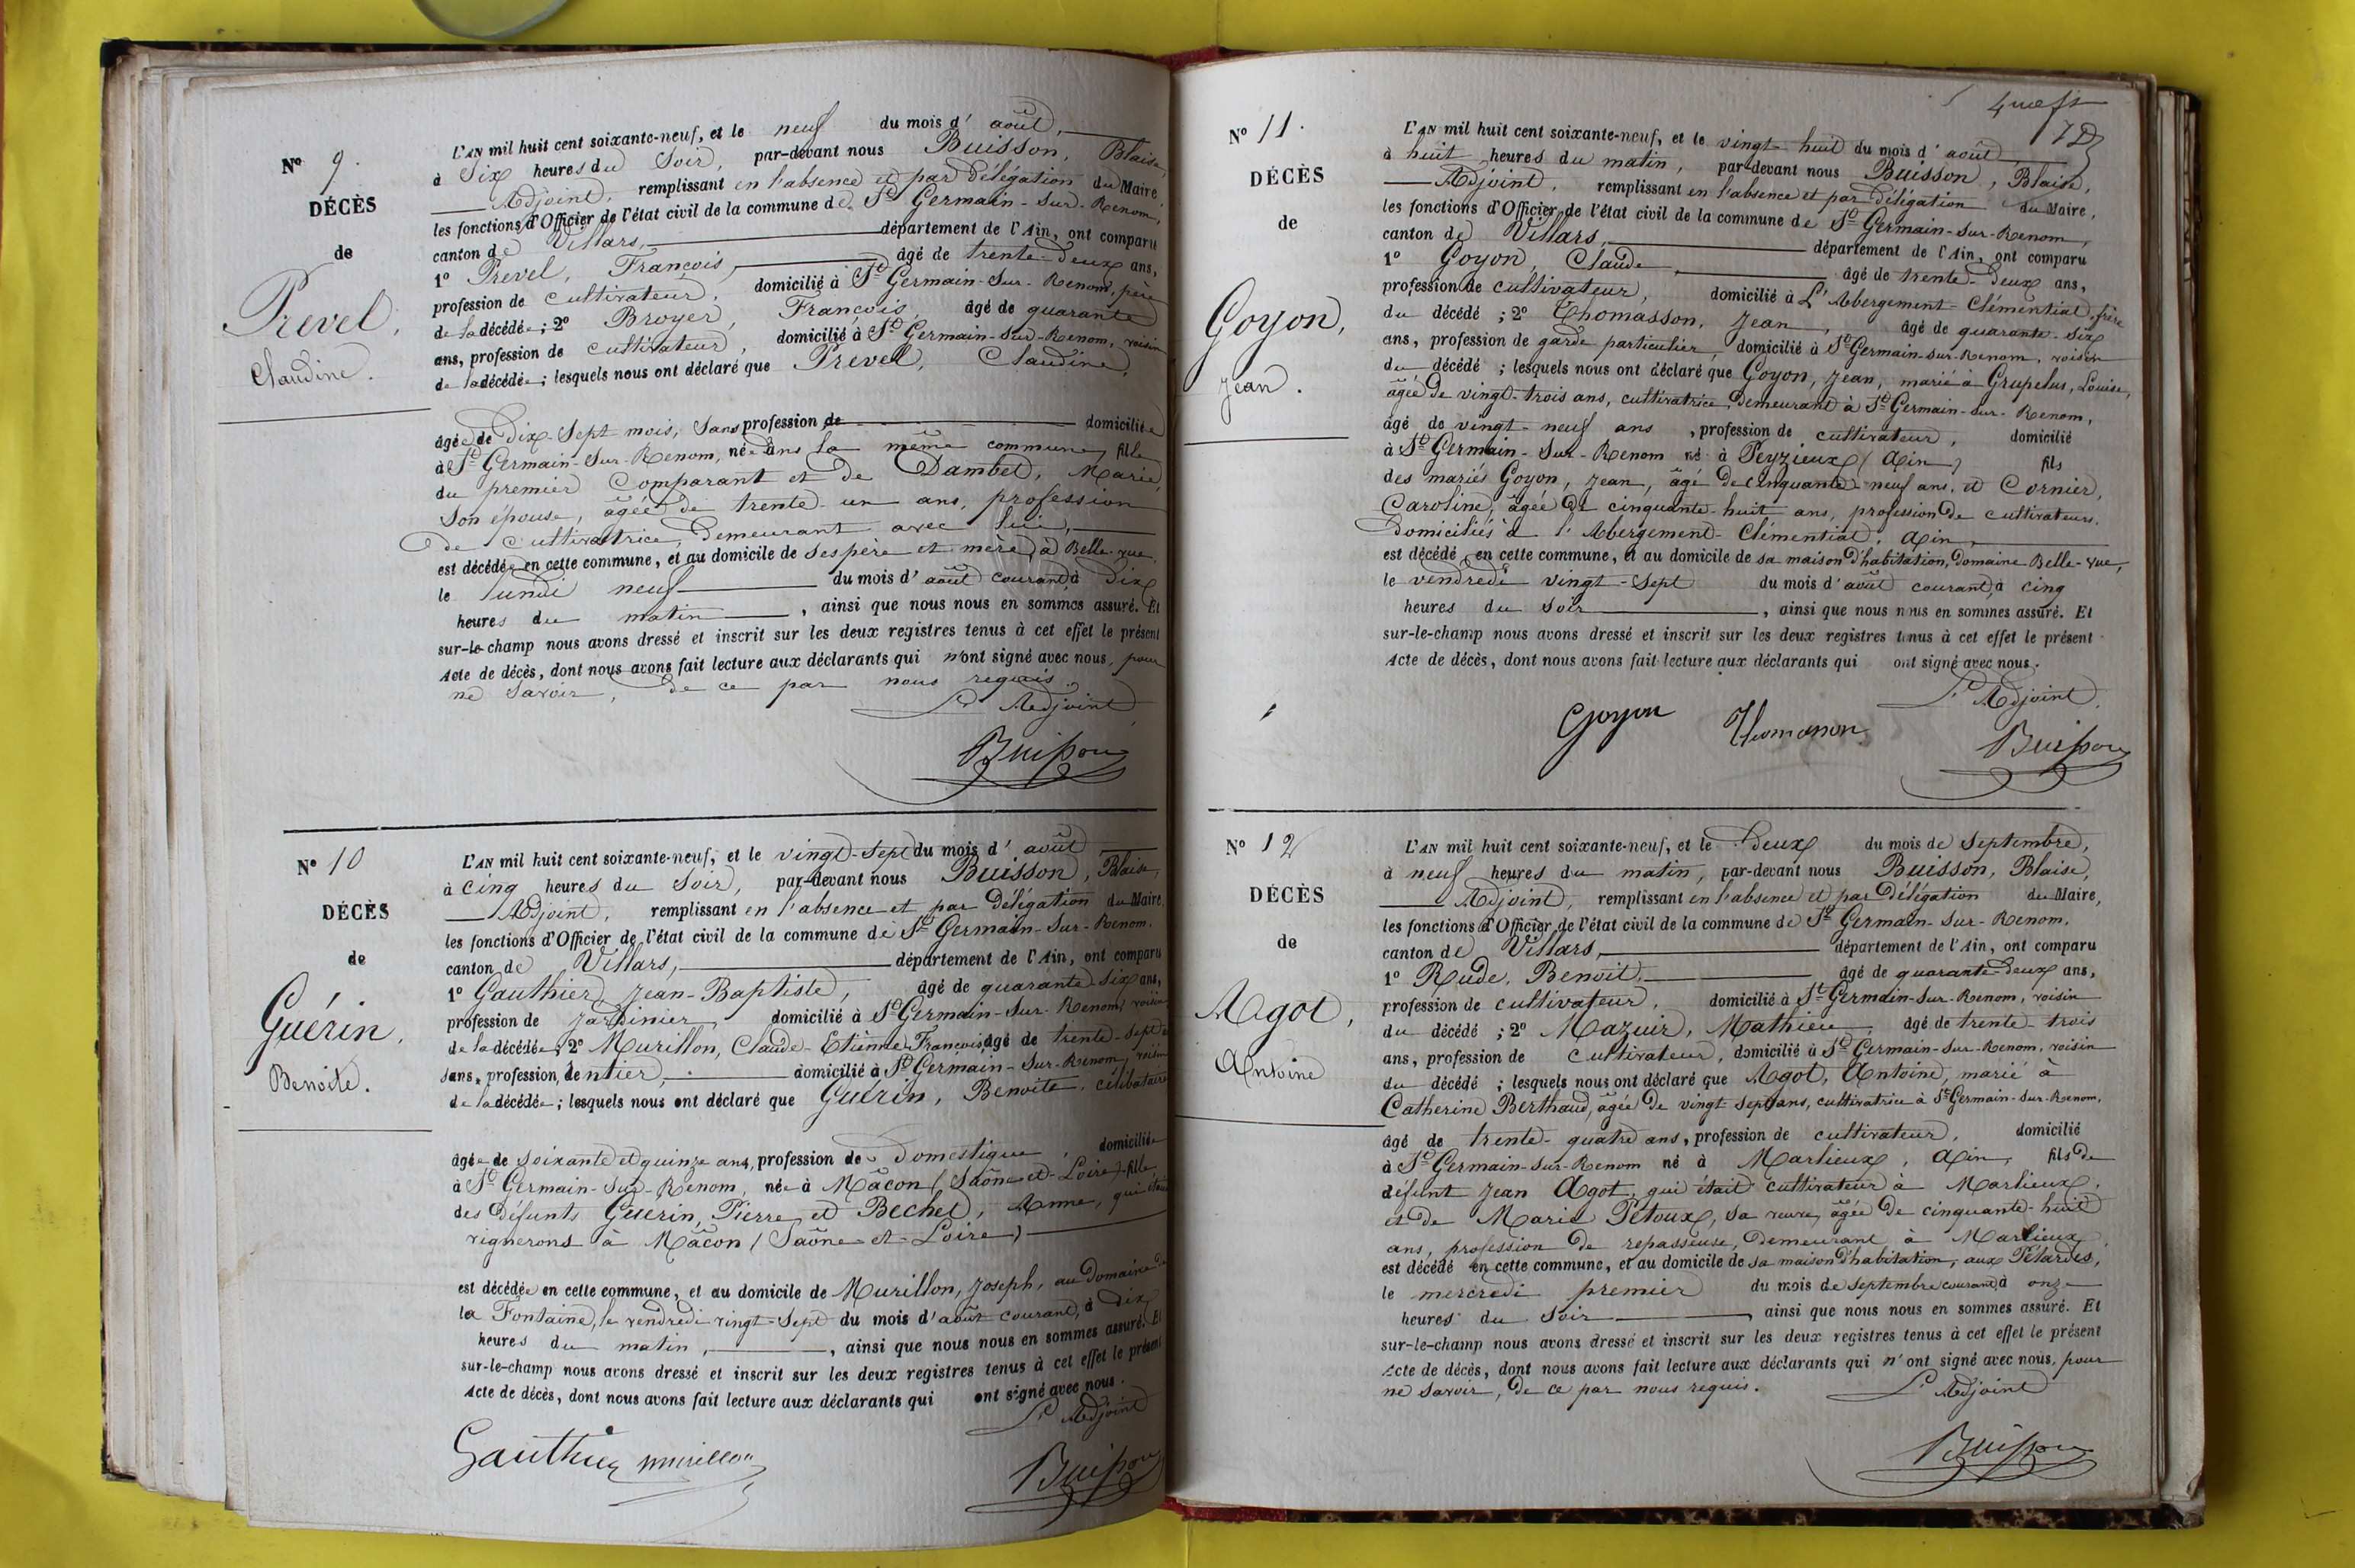 N° 9.
DÉCÈS
de
Prevel,
Claudine.
L'AN mil huit cent soixante-neuf, et le neuf du mois d'août,
à Six heures du Soir, par-devant nous Buisson, Blaise,
Adjoint, remplissant en l'absence et par délégation du Maire,
les fonctions d'Officier de l'état civil de la commune de St Germain-Sur-Renom,
canton de Villars, département de l'Ain, ont comparu
1° Prevel, François, âgé de trente-deux ans,
profession de cultivateur, domicilié à St Germain-Sur-Renom, père
de la décédée; 2° Broyer, François, âgé de quarante
ans, profession de cultivateur, domicilié à St Germain-Sur-Renom, voisin
de la décédée; lesquels nous ont déclaré que Prevel, Claudine,
âgée de Dix-Sept mois, Sans profession de domiciliée
à St Germain-Sur-Renom, née dans la même commune, fille
du premier Comparant et de Dambet, Marie,
Son épouse, âgée de trente-un ans, profession
de cultivatrice, demeurant avec lui,
est décédée en cette commune, et au domicile de ses père et mère, à Belle-vue,
le lundi neuf du mois d'août courant, à Dix
heures du matin, ainsi que nous nous en sommes assuré. Et
sur-le-champ nous avons dressé et inscrit sur les deux registres tenus à cet effet le présent
Acte de décès, dont nous avons fait lecture aux déclarants qui n'ont signé avec nous, pour
ne Savoir, de ce par nous requis.
L'Adjoint
Buisson
N° 10
DÉCÈS
de
Guérin,
Benoite.
L'AN mil huit cent soixante-neuf, et le vingt-Sept du mois d'août
à Cinq heures du Soir, par-devant nous Buisson, Blaise,
Adjoint, remplissant en l'absence et par délégation du Maire,
les fonctions d'Officier de l'état civil de la commune de St Germain-Sur-Renom,
canton de Villars, département de l'Ain, ont comparu
1° Gauthier, Jean-Baptiste, âgé de quarante-six ans,
profession de Jardinier, domicilié à St Germain-Sur-Renom, voisin
de la décédée; 2° Murillon, Claude-Etienne-François, âgé de trente-Sept
ans, profession, de rentier, domicilié à St Germain-Sur-Renom, voisin
de la décédée; lesquels nous ont déclaré que Guérin, Benoite, célibataire
âgée de Soixante et quinze ans, profession de Domestique, domiciliée
à St Germain-Sur-Renom, née à Mâcon (Saône-et-Loire) fille
des défunts Guerin, Pierre, et Bechet, Anne, qui étaient
vignerons à Mâcon (Saône-et-Loire)
est décédée en cette commune, et au domicile de Murillon, Joseph, au Domaine de
la Fontaine, le vendredi vingt-Sept du mois d'août courant, à Dix
heures du matin, ainsi que nous nous en sommes assuré. Et
sur-le-champ nous avons dressé et inscrit sur les deux registres tenus à cet effet le présent
Acte de décès, dont nous avons fait lecture aux déclarants qui ont signé avec nous.
L'Adjoint
Gauthier murillon
Buisson
N° 11.
DÉCÈS
de
Goyon,
Jean.
L'AN mil huit cent soixante-neuf, et le vingt-huit du mois d'août
à huit heures du matin, par-devant nous Buisson, Blaise,
Adjoint, remplissant en l'absence et par délégation du Maire,
les fonctions d'Officier de l'état civil de la commune de St Germain-Sur-Renom,
canton de Villars, département de l'Ain, ont comparu
1° Goyon, Claude, âgé de trente-deux ans,
profession de cultivateur, domicilié à L'Abergement-Clémentiat, frère
du décédé; 2° Thomasson, Jean, âgé de quarante-six
ans, profession de garde particulier, domicilié à St Germain-Sur-Renom, voisin
du décédé; lesquels nous ont déclaré que Goyon, Jean, marié à Grupelus, Louise,
âgée de vingt-trois ans, cultivatrice, demeurant à St Germain-Sur-Renom,
âgé de vingt-neuf ans, profession de cultivateur, domicilié
à St Germain-Sur-Renom né à Peyzieux (Ain) fils
des mariés Goyon, Jean, âgé de cinquante-neuf ans, et Cornier,
Caroline, âgée de cinquante-huit ans, profession de cultivateurs,
Domiciliés à l'Abergement-Clémentiat, Ain,
est décédé en cette commune, et au domicile de sa maison d'habitation, Domaine Belle-vue,
le vendredi vingt-Sept du mois d'août courant, à cinq
heures du soir, ainsi que nous nous en sommes assuré. Et
sur-le-champ nous avons dressé et inscrit sur les deux registres tenus à cet effet le présent
Acte de décès, dont nous avons fait lecture aux déclarants qui ont signé avec nous.
L'Adjoint,
Goyon Thomasson
Buisson
N° 12
DÉCÈS
de
Agot,
Antoine
L'AN mil huit cent soixante-neuf, et le Deux du mois de Septembre,
à neuf heures du matin, par-devant nous Buisson, Blaise,
Adjoint, remplissant en l'absence et par délégation du Maire,
les fonctions d'Officier de l'état civil de la commune de St Germain-Sur-Renom,
canton de Villars, département de l'Ain, ont comparu
1° Rude, Benoit, âgé de quarante-deux ans,
profession de cultivateur, domicilié à St Germain-Sur-Renom, voisin
du décédé; 2° Mazuir, Mathieu, âgé de trente-trois
ans, profession de cultivateur, domicilié à St Germain-Sur-Renom, voisin
du décédé; lesquels nous ont déclaré que Agot, Antoine, marié à
Catherine Berthaud, âgée de vingt-Sept ans, cultivatrice à St Germain-Sur-Renom,
âgé de trente-quatre ans, profession de cultivateur, domicilié
à St Germain-Sur-Renom né à Marlieux, Ain, fils de
défunt Jean Agot, qui était cultivateur à Marlieux,
et de Marie Pétoux, sa veuve, âgée de cinquante-huit
ans, profession de repasseuse, demeurant à Marlieux,
est décédé en cette commune, et au domicile de sa maison d'habitation, aux Pétardes,
le mercredi premier du mois de Septembre courant, à onze
heures du Soir, ainsi que nous nous en sommes assuré. Et
sur-le-champ nous avons dressé et inscrit sur les deux registres tenus à cet effet le présent
Acte de décès, dont nous avons fait lecture aux déclarants qui n'ont signé avec nous, pour
ne Savoir, de ce par nous requis.
L'Adjoint
Buisson